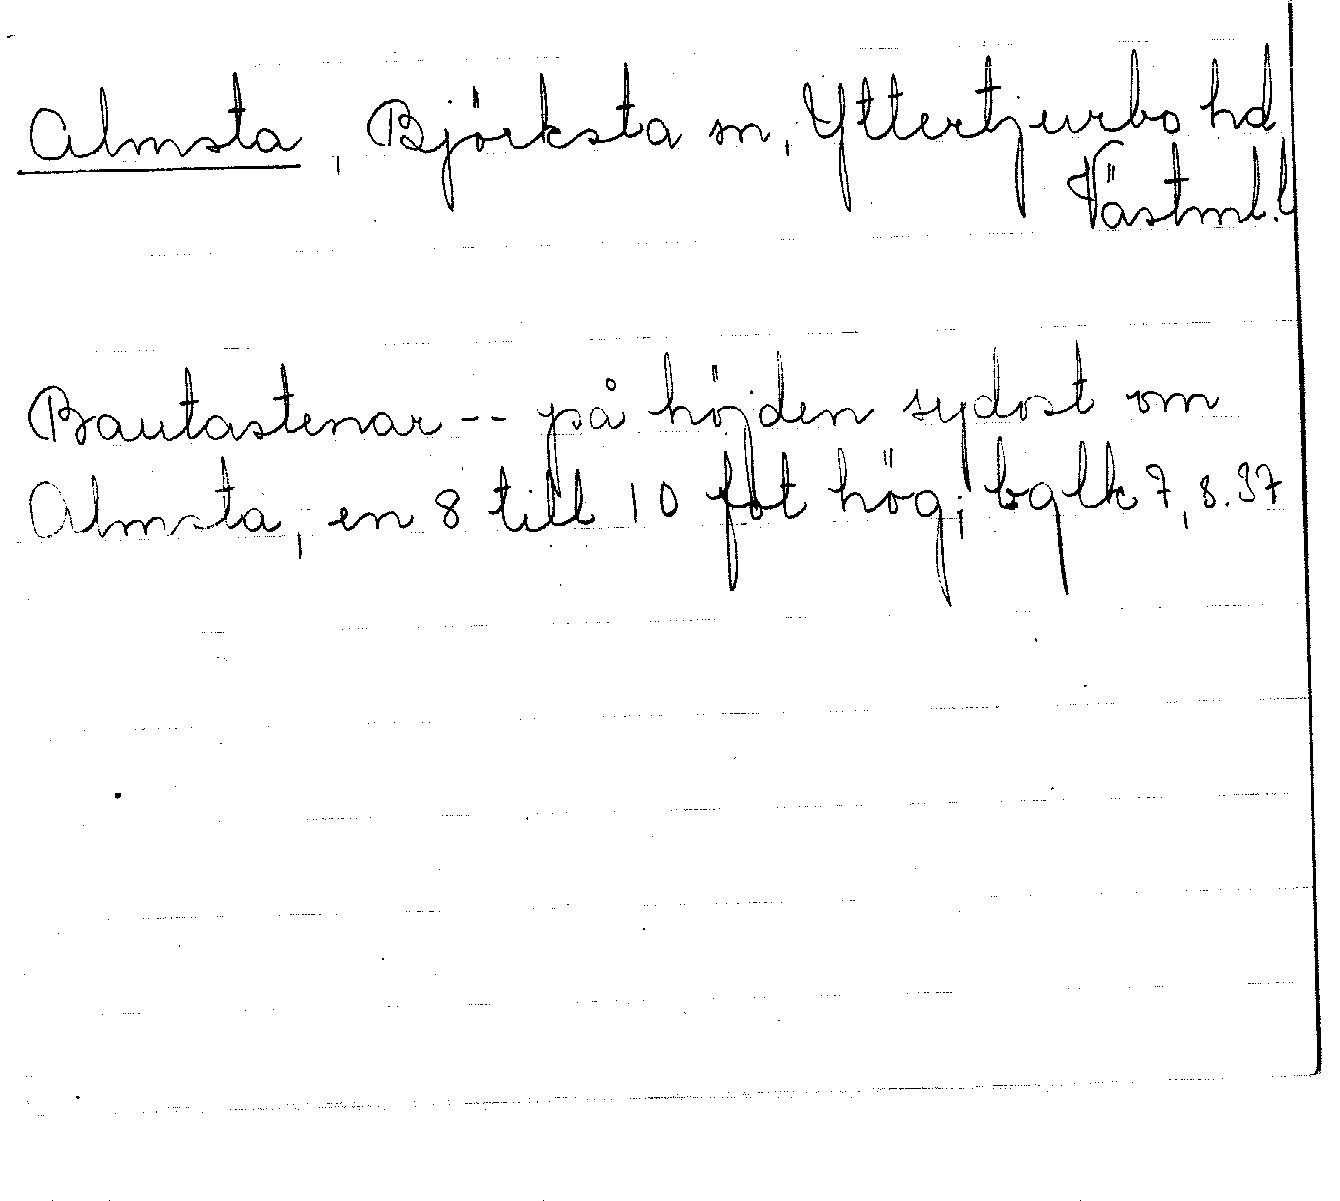 Almsta, Björksta sn, Yttertjurbo hd,
Västml. l
Bautastenar -- på höjden sydost om
Almsta, en 8 till 10 fot hög; bglk 7, s. 37